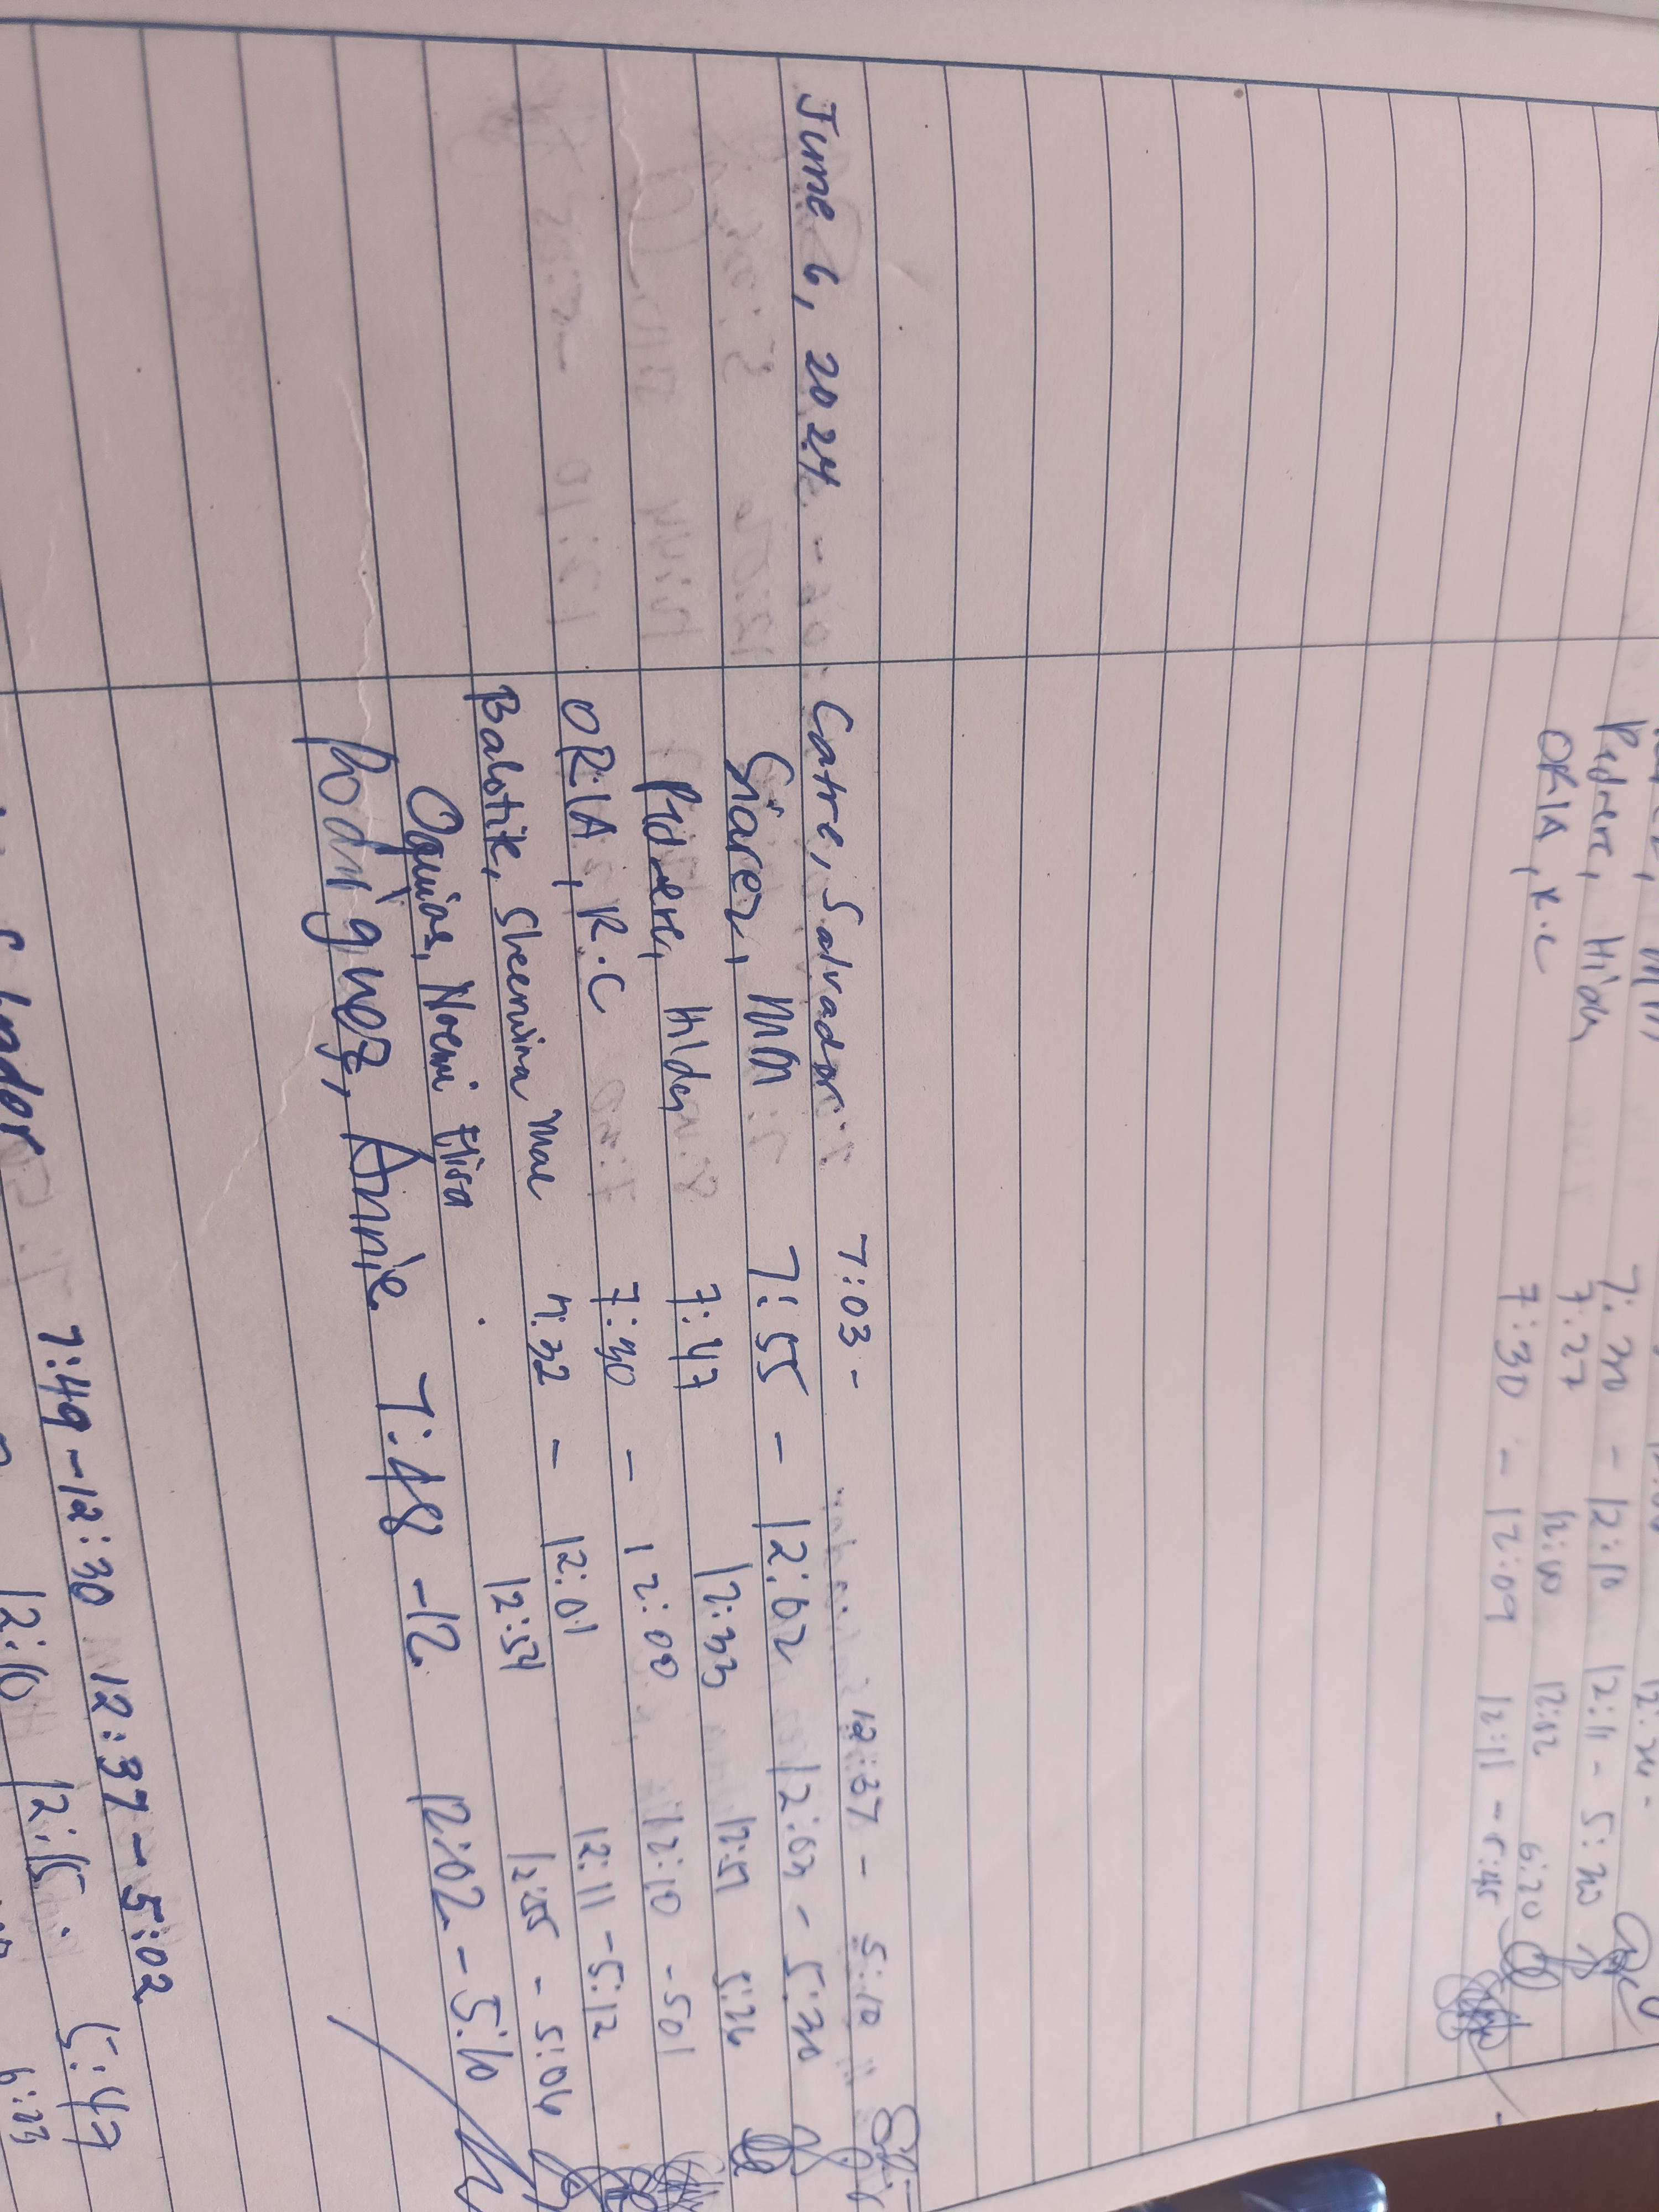 Pedrere, Hilda 7:27 12:00 12:02 6:20
ORIA, R.C 7:30 - 12:09 12:11 - 5:45
June 6, 2024 Catre, Salvador 7:03 - 12:37 - 5:10
Giarez, MM 7:55 - 12:02 12:03 - 5:30
Pedrere, Hilda 7:47 12:33 12:51 5:26
ORIA, R.C 7:30 - 12:00 12:10 - 501
Balotite, Sheerwina Mae 7:32 - 12:01 12:11 - 5:12
Oquias, Noemi Elisa 12:54 12:55 - 5:04
Rodriguez, Annie 7:48 - 12 12:02 - 5:10
7:49 - 12:30 12:37 - 5:02
12:10 12:15 5:47